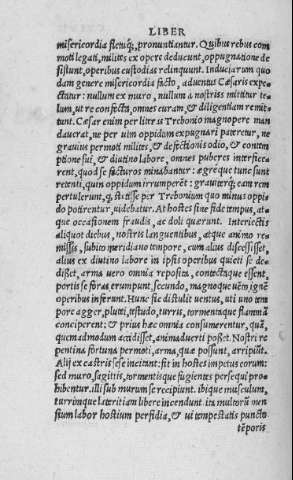 LIBER
misericordia fletuq́, pronuntiantur. Quibus rebus com
moti legati, milites ex opere deducunt, oppugnatione de
sistunt, operibus custodias relinquunt. Induciarum quo
dam genere misericordia facto, aduentus Cæsaris expe-
ctatur: nullum ex muro, nullum a nostris mittitur te-
lum, ut re confecta, omnes curam, & diligentiam remit-
tunt. Cæsar enim per litteras Trebonio magnopere man
dauerat, ne per uim oppidum expugnari pateretur, ne
grauius permoti milites, & defectionis odio, & contem
ptione sui, & diutino labore, omnes puberes interfice
rent, quod se facturos minabantur: ægreque tunc sunt
retenti, quin oppidum irrumperēt: grauiterq́; eam rem
pertulerunt, q̇ stetisse per Trebonium quo minus oppi-
do potirentur, uidebatur. At hostes sine fide tempus, at-
que occasionem fraudis, ac doli quærunt. Interiectis
aliquot diebus, nostris languentibus, atque animo re-
missis, subito meridiano tempore, cum alius discessisset,
alius ex diutino labore in ipsis operibus quieti se de-
disset, arma uero omnia reposita, contectaque essent,
portis se foras erumpunt, secundo, magnoque uēto ignē
operibus inferunt. Hunc sic distulit uentus, uti uno tem
pore agger, plutei, testudo, turris, tormentaque flammā
conciperent: & prius hæc omnia consumerentur, quā,
quemadmodum accidisset, animaduerti posset. Nostri re
pentina fortuna permoti, arma, quæ possunt, arripiūt.
Alij ex castris sese incitant: fit in hostes impetus eorum:
sed muro, sagittis, tormentisque fugientes persequi pro-
hibentur. illi sub murum se recipiunt. ibique musculum,
turrimque lateritiam libere incendunt. ita multorū men
sium labor hostium perfidia, & ui tempestatis puncto
tēporis